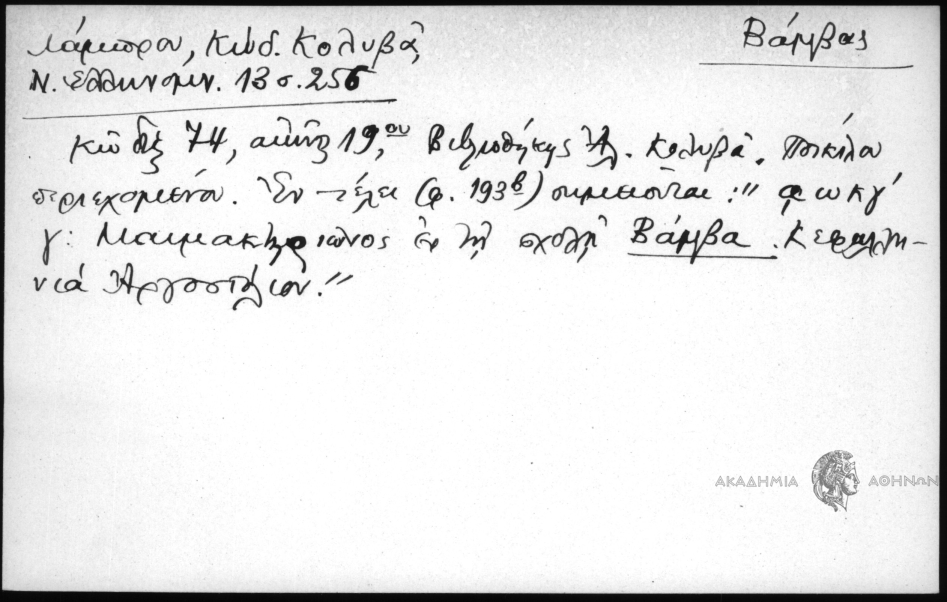 Βάμβας
Λάμπρου, Κώδ. Κολυβᾶ,
Ν. Ἑλληνομν. 13 σ. 256
Κῶδιξ 74, αἰῶνος 19ου, Βιβλιοθήκης Ἀλ. Κολυβᾶ. Ποικίλου
περιεχομένου. Ἐν τέλει (φ. 193β) σημειοῦται: " αωκγʹ
γ: Μαιμακτηριῶνος ἐν τῇ σχολῇ Βάμβα. Κεφαλλη-
νιά Ἀργοστόλιον."
ΑΚΑΔΗΜΙΑ ΑΘΗΝΩΝ